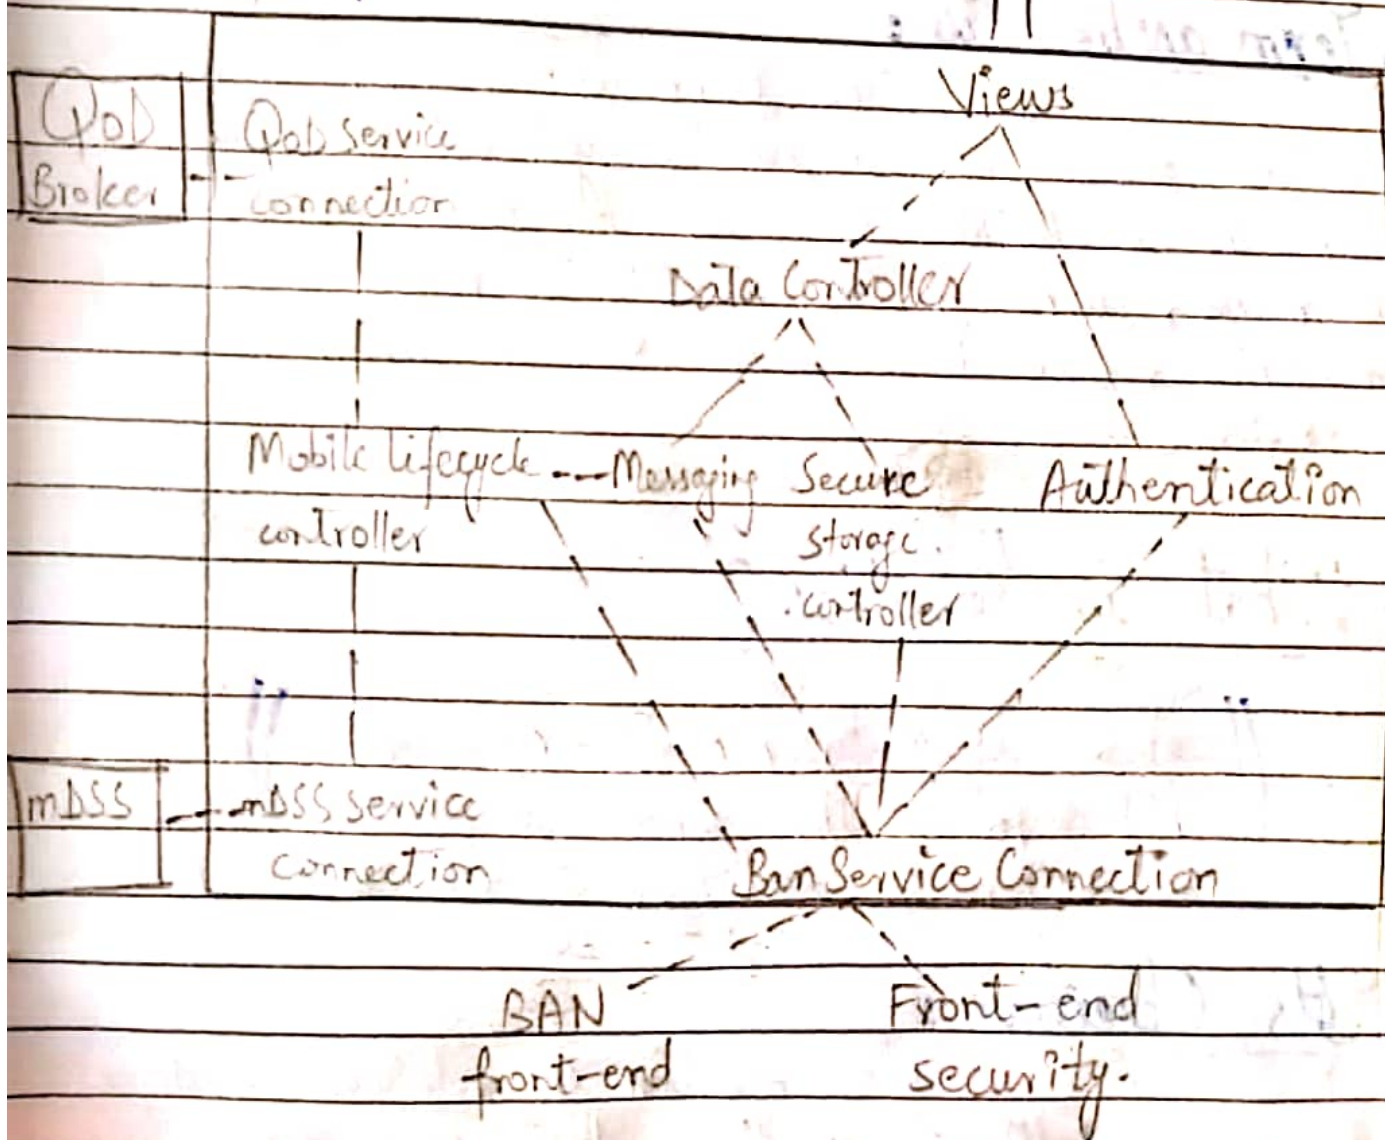 Views
QoD
Broker
QoD Service
connection
Data Controller
Mobile Lifecycle
controller
Messaging
Secure
storage
controller
Authentication
mDSS
mDSS Service
Connection
Ban Service Connection
BAN
front-end
Front-end
security.